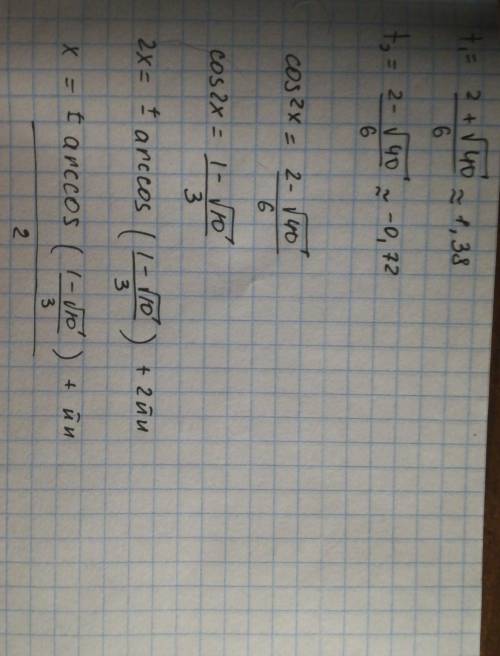 t₁ = (2 + √40)/6 ≈ 1,38
t₂ = (2 - √40)/6 ≈ -0,72
cos2x = (2 - √40)/6
cos2x = (1 - √10)/3
2x = ± arccos ((1 - √10)/3) + 2πn
x = ± arccos ((1 - √10)/3)/2 + πn